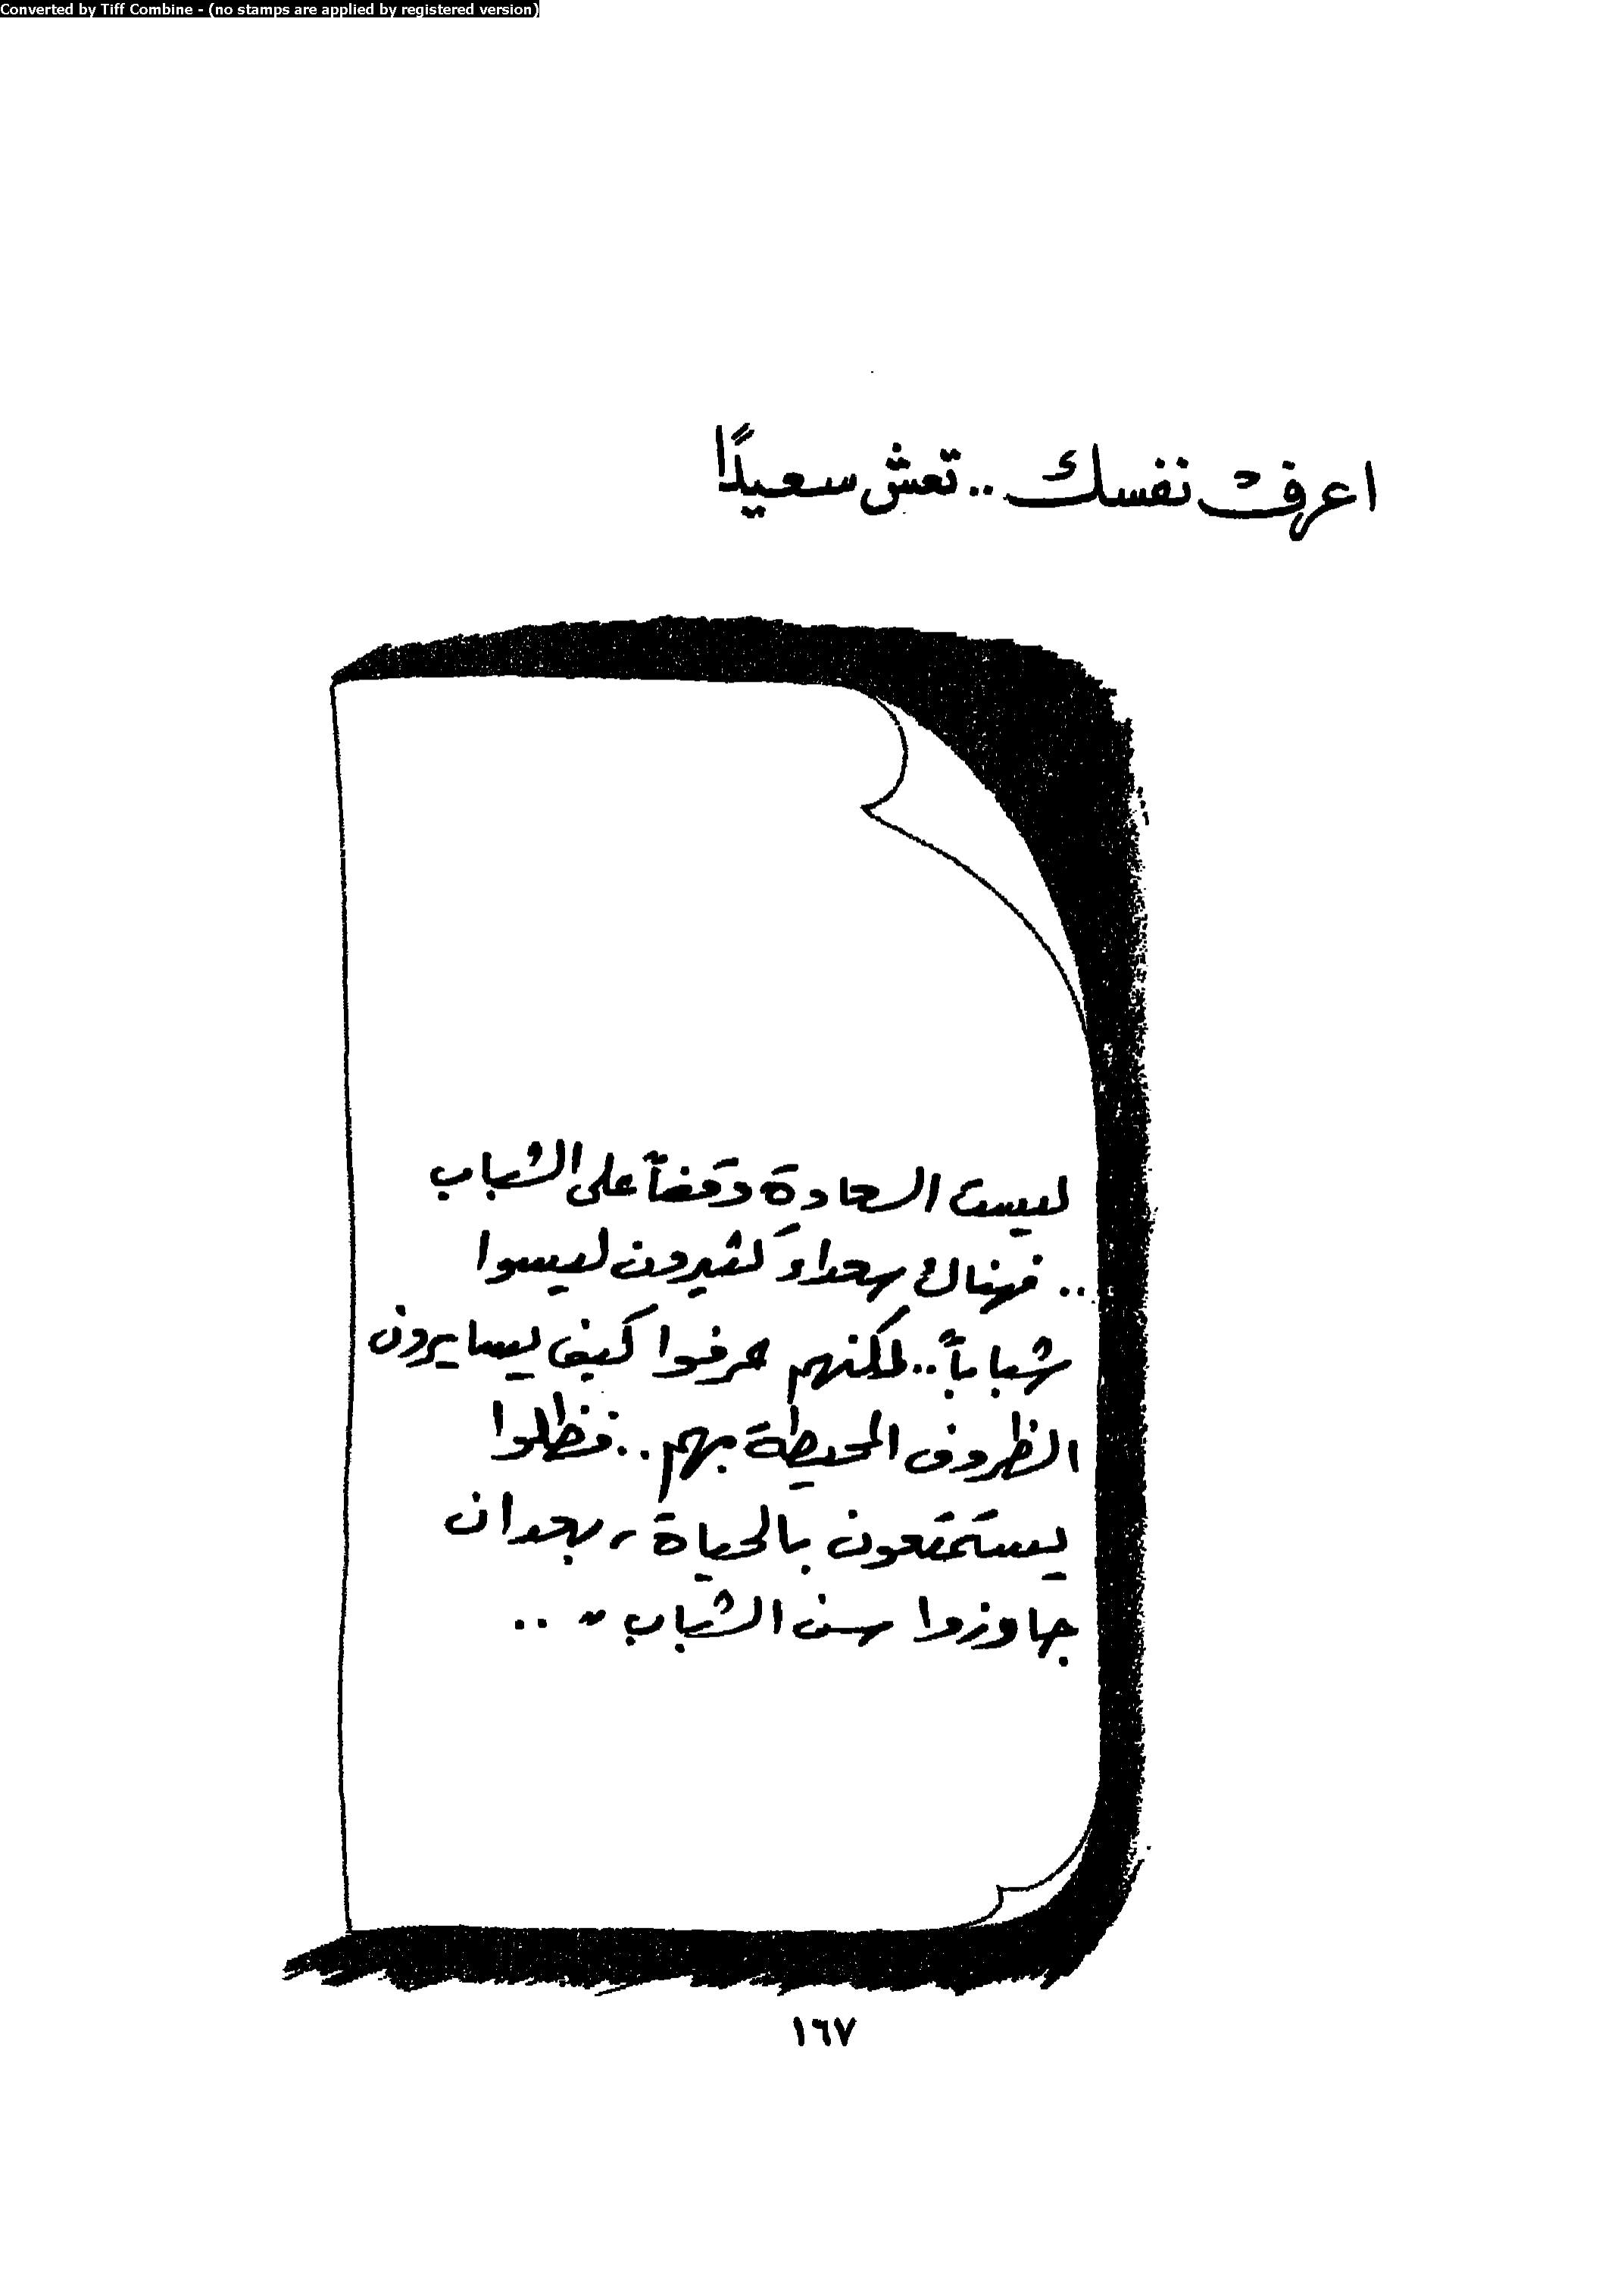 Converted by Tiff Combine - (no stamps are applied by registered version)
اعرف نفسك .. تعش سعيدًا
ليست السعادة وقفاً على الشباب
.. فهناك سعداء كثيرون ليسوا
شباباً .. لكنهم عرفوا كيف يسايرون
الظروف المحيطة بهم .. فظلوا
يستمتعون بالحياة ، بعد ان
جاوزوا سن الشباب " ..
١٦٧